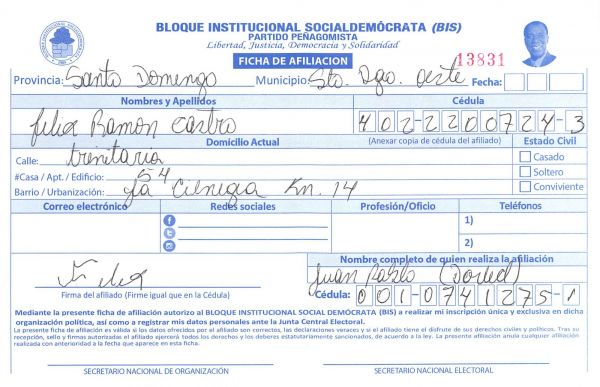 BLOQUE INSTITUCIONAL SOCIALDEMÓCRATA (BIS)
PARTIDO PEÑAGOMISTA
Libertad, Justicia, Democracia y Solidaridad
FICHA DE AFILIACION
13831
Provincia: Santo Domingo Municipio: Sto. Dgo. oeste Fecha:
Nombres y Apellidos Cédula
felix Ramon Castro 402-2200724-3
Domicilio Actual (Anexar copia de cédula del afiliado) Estado Civil
Calle: trenitaria Casado
#Casa / Apt. / Edificio: 54 Soltero
Barrio / Urbanización: La Cienega Km. 14 Conviviente
Correo electrónico Redes sociales Profesión/Oficio Teléfonos
1)
2)
Nombre completo de quien realiza la afiliación
Felix Juan Pablo
Firma del afiliado (Firme igual que en la Cédula) Cédula: 001-0741275-1
Mediante la presente ficha de afiliación autorizo al BLOQUE INSTITUCIONAL SOCIAL DEMÓCRATA (BIS) a realizar mi inscripción única y exclusiva en dicha
organización política, así como a registrar mis datos personales ante la Junta Central Electoral.
La presente ficha de afiliación es válida si los datos ofrecidos por el afiliado son correctos, las declaraciones veraces y si el afiliado tiene el disfrute de sus derechos civiles y políticos. Tras su
recepción, sello y firmas autorizadas el afiliado ejercerá todos los derechos y los deberes estatutariamente sancionados, de acuerdo a la ley. La presente afiliación anula cualquier afiliación
realizada con anterioridad a la fecha que aparece en esta ficha.
SECRETARIO NACIONAL DE ORGANIZACIÓN SECRETARIO NACIONAL ELECTORAL